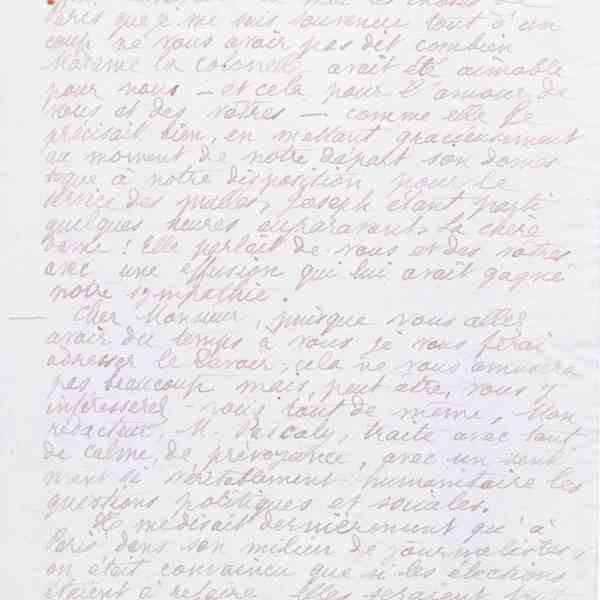 Paris que je me suis souvenue tout d'un
coup ne vous avoir pas dit combien
Madame la colonelle avait été aimable
pour nous – et cela pour l'amour de
vous et des vôtres – comme elle le
précisait bien, en mettant gracieusement
au moment de notre départ son domes-
tique à notre disposition pour le
service des malles, Joseph étant parti
quelques heures auparavant. La chère
dame ! Elle parlait de vous et des vôtres
avec une effusion qui lui avait gagné
notre sympathie.
Cher Monsieur, puisque vous allez
avoir du temps à vous je vous ferai
adresser le Devoir ; cela ne vous amusera
pas beaucoup mais, peut être, vous y
intéresserez-vous tout de même, Mon
rédacteur, M. Pascaly, traite avec tant
de calme, de prévoyance, avec un senti
ment si véritablement humanitaire les
questions politiques et sociales.
Il me disait dernièrement qu'à
Paris dans son milieu de journalistes,
on était convaincu que si les élections
étaient à refaire, elles seraient